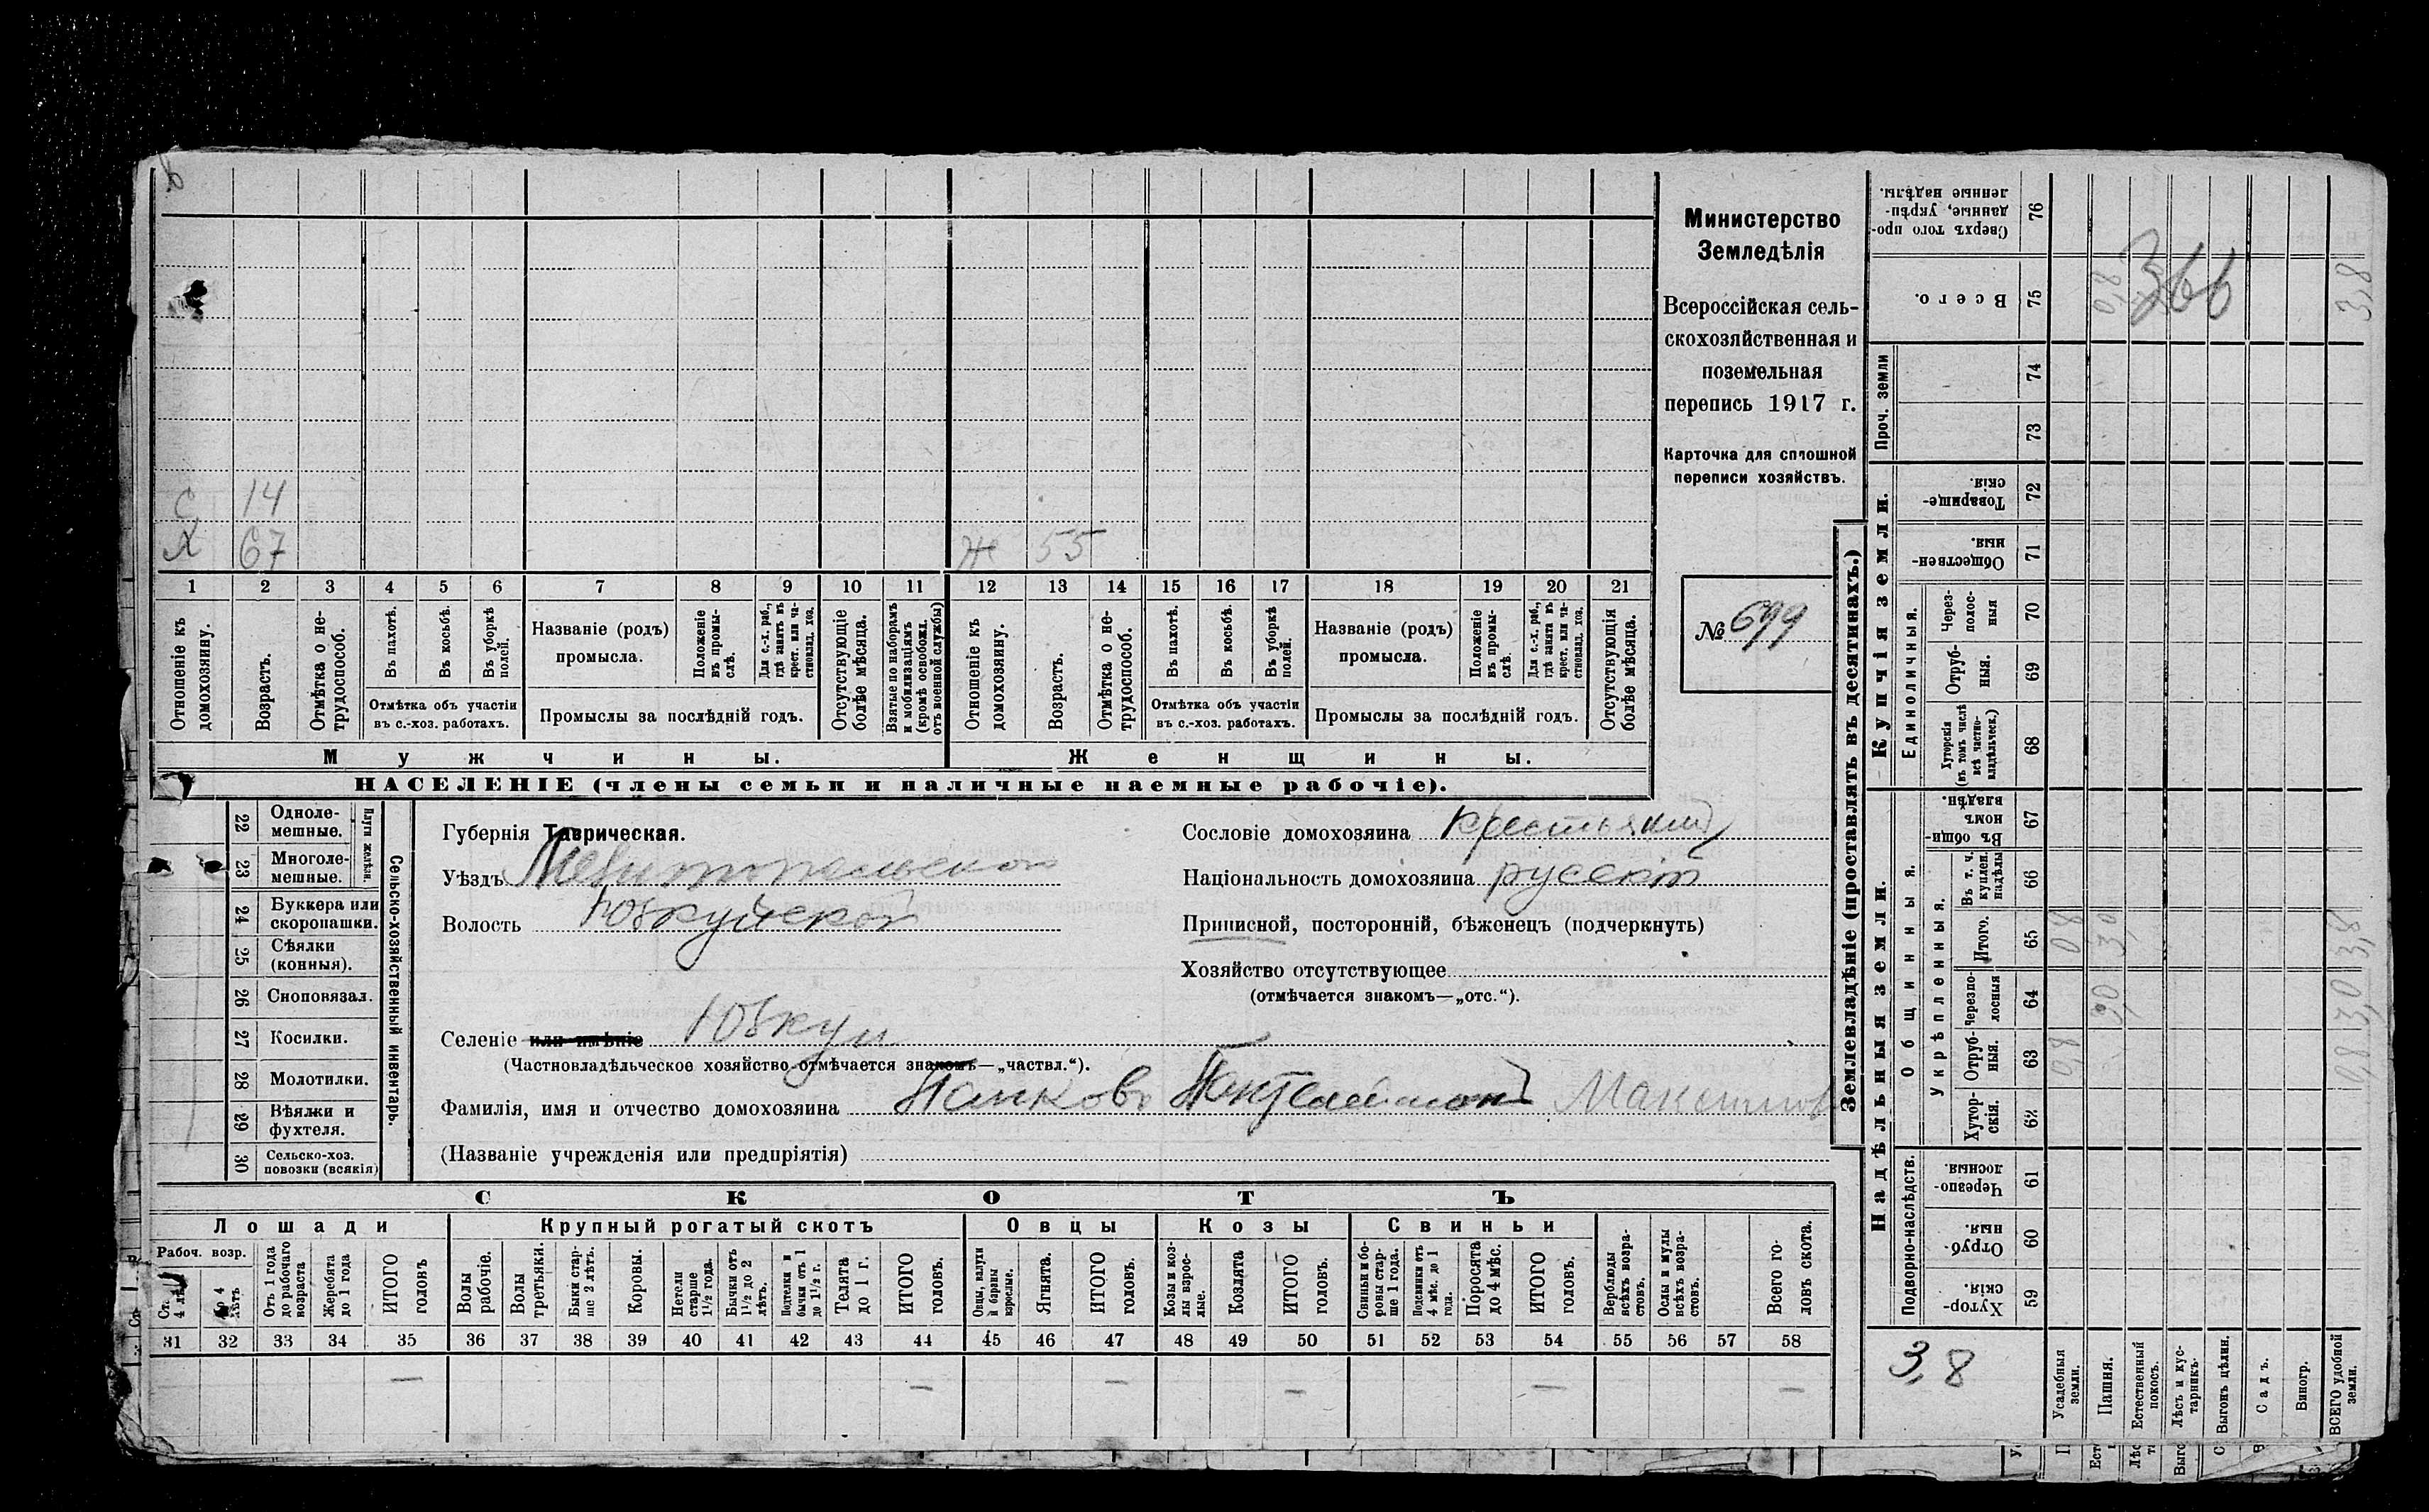 Министерство
Земледѣлія
Всероссійская сель-
скохозяйственная и
поземельная
перепись 1917 г.
Карточка для сплошной
переписи хозяйствъ.
№ 699
С 14
Х 67
Ж 55
1 2 3 4 5 6 7 8 9 10 11 12 13 14 15 16 17 18 19 20 21
Отношеніе къ домохозяину.
Возрастъ.
Отмѣтка о не-трудоспособ.
Въ пахотѣ.
Въ косьбѣ.
Въ уборкѣ полей.
Отмѣтка объ участіи
въ с.-хоз. работахъ.
Названіе (родъ)
промысла.
Положеніе въ промы-слѣ.
Для с.-х. раб., гдѣ занятъ въ крест. или ча-стновлад. хоз.
Промыслы за послѣдній годъ.
Отсутствующіе болѣе мѣсяца.
Взятые по наборамъ и мобилизаціямъ (кромѣ освобожд. отъ военной службы)
Отношеніе къ домохозяину.
Возрастъ.
Отмѣтка о не-трудоспособ.
Въ пахотѣ.
Въ косьбѣ.
Въ уборкѣ полей.
Отмѣтка объ участіи
въ с.-хоз. работахъ.
Названіе (родъ)
промысла.
Положеніе въ промы-слѣ.
Для с.-х. раб., гдѣ занята въ крест. или ча-стновлад. хоз.
Промыслы за послѣдній годъ.
Отсутствующія болѣе мѣсяца.
Мужчины.
Женщины.
НАСЕЛЕНІЕ (члены семьи и наличные наемные рабочіе).
22 Одноле-мешные.
23 Многоле-мешные.
Плуги желѣзн.
24 Буккера или скоропашки.
25 Сѣялки (конныя).
26 Сноповязал.
27 Косилки.
28 Молотилки.
29 Вѣялки и фухтеля.
30 Сельско-хоз. повозки (всякія)
Сельско-хозяйственный инвентарь.
Губернія Таврическая.
Уѣздъ Мелитопольской
Волость Юзкуйской
Селеніе или имѣніе Юзкуи
(Частновладѣльческое хозяйство отмѣчается знакомъ—„частвл.“).
Фамилія, имя и отчество домохозяина Панковъ Пантелеймонъ Максимов
(Названіе учрежденія или предпріятія)
Сословіе домохозяина крестьянинъ
Національность домохозяина русскій
Приписной, посторонній, бѣженецъ (подчеркнуть)
Хозяйство отсутствующее
(отмѣчается знакомъ—„отс.“).
СКОТЪ
Лошади
Крупный рогатый скотъ
Овцы
Козы
Свиньи
Рабоч. возр.
Ст. 4 лѣтъ
До 4 лѣтъ
Отъ 1 года до рабочаго возраста
Жеребята до 1 года
ИТОГО головъ
Волы рабочіе.
Волы третьяки.
Быки стар-ше 2 лѣтъ.
Коровы.
Нетели старше 1½ года.
Бычки отъ 1½ до 2 лѣтъ.
Подтелки и бычки отъ 1 до 1½ г.
Телята до 1 г.
ИТОГО головъ.
Овцы, валухи и бараны взрослые.
Ягнята.
ИТОГО головъ.
Козы и коз-лы взрос-лые.
Козлята
ИТОГО головъ.
Свиньи и бо-ровы стар-ше 1 года.
Подсвинки отъ 4 мѣс. до 1 года.
Поросята до 4 мѣс.
ИТОГО головъ.
Верблюды всѣхъ возра-стовъ.
Ослы и мулы всѣхъ возра-стовъ.
Всего го-ловъ скота.
31 32 33 34 35 36 37 38 39 40 41 42 43 44 45 46 47 48 49 50 51 52 53 54 55 56 57 58
— — — — — —
Землевладѣніе (проставлять въ десятинахъ.)
Надѣльныя земли.
Купчія земли.
Проч. земли
Подворно-наслѣдств.
Общинныя.
Укрѣпленныя.
Единоличныя.
76 Сверхъ того про-данные, укрѣп-ленные надѣлы.
75 Всего. 0,8 366 3,8
74
73
72 Товарище-скія.
71 Обществен-ныя.
70 Через-полос-ныя
69 Отруб-ныя.
68 Хуторскія (въ томъ числѣ всѣ частно-владѣльческ.)
67 Въ общи-номъ владѣн.
66 Въ т. ч. куплен. надѣлы
65 Итого. 0,8 3,0 3,8
64 Черезпо-лосныя 3,0 3,0
63 Отруб-ныя. 0,8 0,8
62 Хутор-скія.
61 Черезпо-лосныя.
60 Отруб-ныя.
59 Хутор-скія.
3,8
Усадебныя земли.
Пашня.
Естественный покосъ.
Лѣсъ и кус-тарникъ.
Выгонъ цѣлин.
Садъ.
Виногр.
ВСЕГО удобной земли.